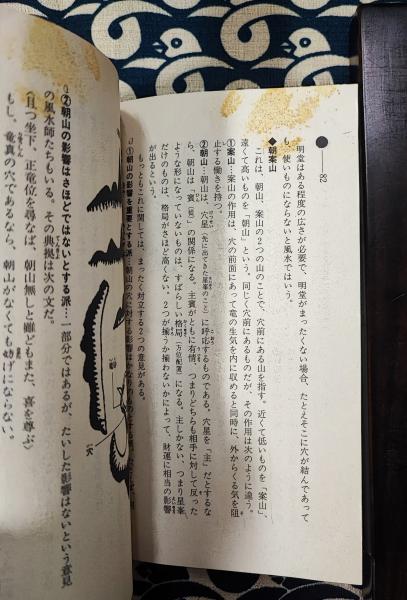 82
明堂はある程度の広さが必要で、明堂がまったくない場合、たとえそこに穴が結んであって
も、使いものにならないと風水ではいう。
◆朝案山
これは、朝山、案山の２つの山のことで、穴前にある山を指す。近くて低いものを「案山」、
遠くて高いものを「朝山」という。同じく穴前にあるものだが、その作用は次のように違う。
①案山…案山の作用は、穴の前面にあって竜の生気を内に収めると同時に、外からくる気を阻
止する働きを持つ。
②朝山…朝山は、穴星（先に出てきた星峯のこと）に呼応するものである。穴星を「主」だとするな
ら、朝山は「賓」の関係になる。主賓がともに有情、つまりどちらも相手に対して反った
ような形になっていないものは、すばらしい格局（方位配置）になる。主しかない、つまり星峯
だけのものは、格局がさほど高くない。２つが揃うか揃わないかによって、財運に相当の影響
が出るという。
もっともこれに関しては、まったく対立する２つの意見がある。
①朝山の影響を重要とする派…朝山の穴に対する影響はかなりの
②朝山の影響はさほどではないとする派…一部分ではあるが、たいした影響はないという意見
の風水師たちもいる。その典拠は次の文だ。
〈且つ坐下、正竜位を尋なば、朝山無しと雖どもまた、喜を尊ぶ〉
もし、竜真の穴であるなら、朝山がなくても妨げにならない。